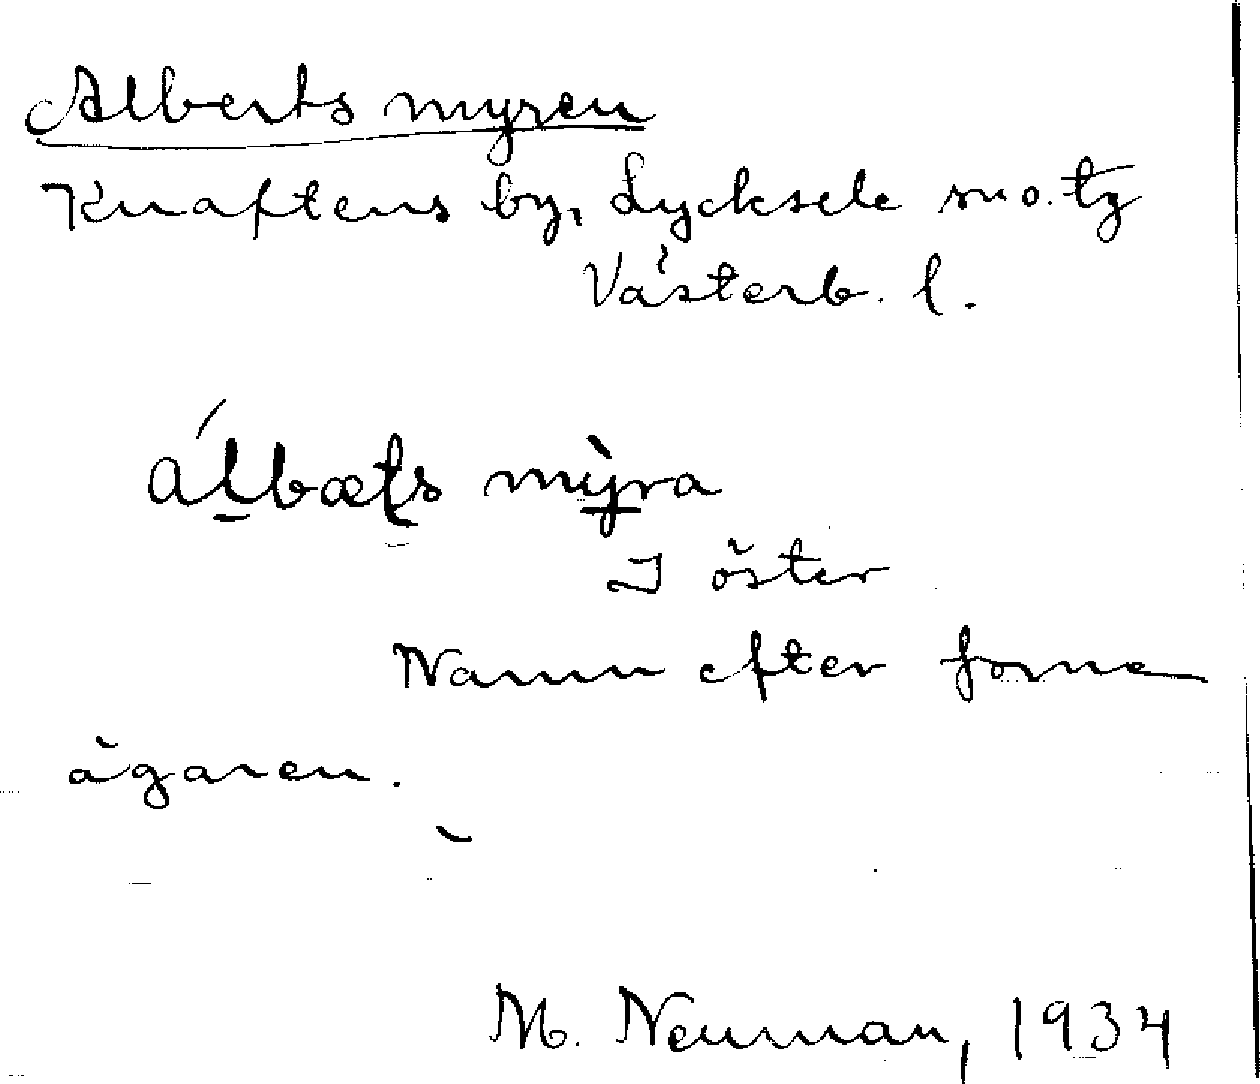 Alberts myren
Knaftens by, Lycksele sn o. tg
Västerb. l.
álbæţs mỳra
I öster
Namn efter forne
ägaren.
M. Neuman, 1934